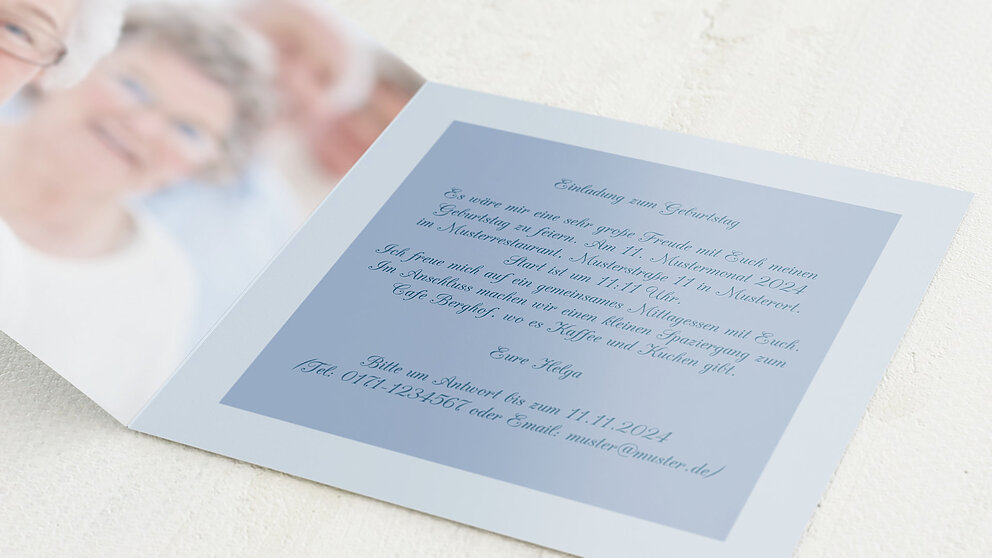 Einladung zum Geburtstag
Es wäre mir eine sehr große Freude mit Euch meinen
Geburtstag zu feiern. Am 11. Mustermonat 2024
im Musterrestaurant, Musterstraße 11 in Musterort.
Start ist um 11:11 Uhr.
Ich freue mich auf ein gemeinsames Mittagessen mit Euch.
Im Anschluss machen wir einen kleinen Spaziergang zum
Cafe Berghof, wo es Kaffee und Kuchen gibt.
Eure Helga
Bitte um Antwort bis zum 11.11.2024
(Tel: 0171-1234567 oder Email: muster@muster.de)